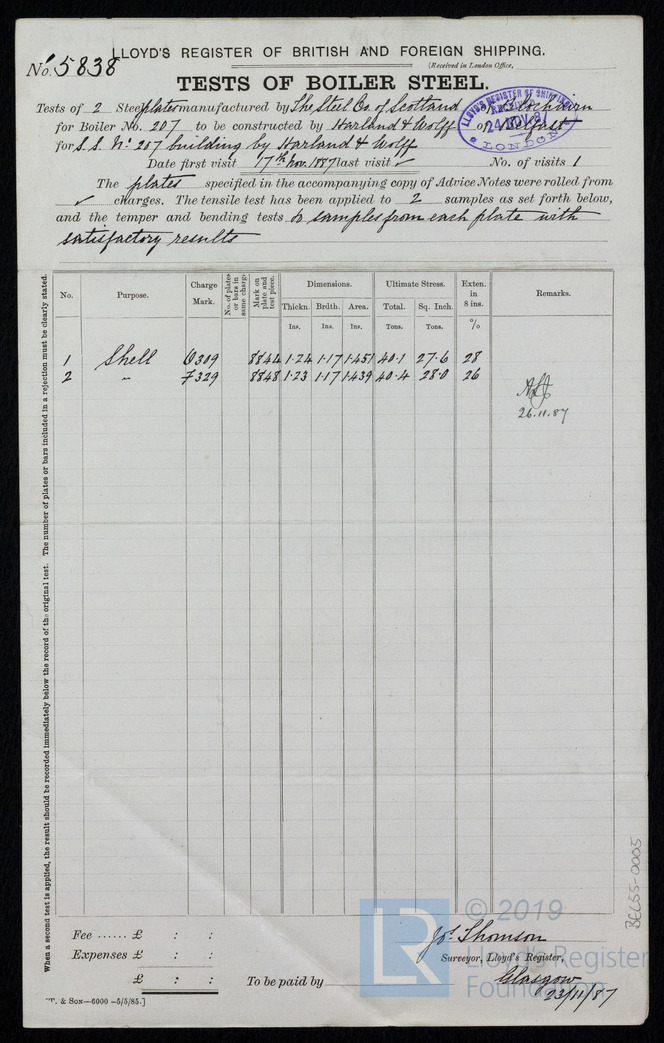 LLOYD'S REGISTER OF BRITISH AND FOREIGN SHIPPING.
No. 5838
(Received in London Office,
TESTS OF BOILER STEEL.
Tests of 2 Steel plates manufactured by The Steel Co. of Scotland of Blochairn
for Boiler No. 207 to be constructed by Harland & Wolff of Belfast
for S.S. No. 207 building by Harland & Wolff
LLOYD'S REGISTER OF SHIPPING
RECEIVED
24 NOV. 87
LONDON
Date first visit 17th Nov. 1887 last visit ✓ No. of visits 1
The plates specified in the accompanying copy of Advice Notes were rolled from
✓ charges. The tensile test has been applied to 2 samples as set forth below,
and the temper and bending tests to samples from each plate with
satisfactory results
When a second test is applied, the result should be recorded immediately below the record of the original test. The number of plates or bars included in a rejection must be clearly stated.
No. Purpose. Charge Mark. No. of plates or bars in same charge. Mark on plate and test piece. Dimensions. Ultimate Stress. Exten. in 8 ins. Remarks.
Thickn. Brdth. Area. Total. Sq. Inch.
Ins. Ins. Ins. Tons. Tons. %
1 Shell 6309 8844 1.24 1.17 1.451 40.1 27.6 28
2 " 7329 8848 1.23 1.17 1.439 40.4 28.0 26
26.11.87
BEL55-0005
Fee ...... £ : :
Expenses £ : :
£ : :
To be paid by
Jos. Thomson
Surveyor, Lloyd's Register,
Glasgow
23/11/87
T. & Son—6000—5/5/85.]
LR
© 2019
Lloyd's Register
Foundation